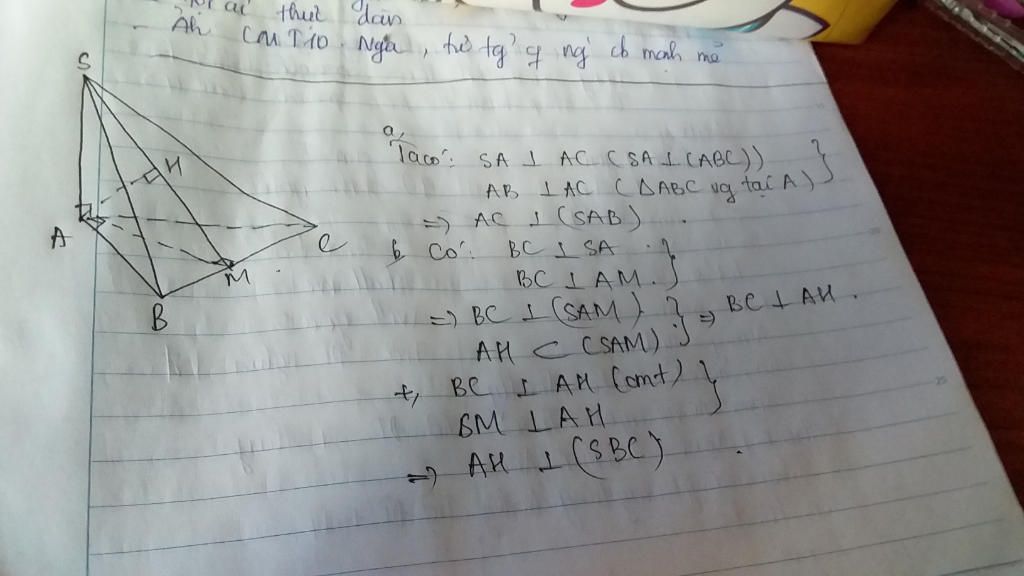 thực dân
- Âh CMT10 Nga, tư tg' ng' ch mạnh mẽ
S
H
A
C
M
B
a,
Ta có: SA ⊥ AC (SA ⊥ (ABC))
AB ⊥ AC (△ABC vg tại A)
=> AC ⊥ (SAB).
b, Có: BC ⊥ SA
BC ⊥ AM.
=> BC ⊥ (SAM) } => BC ⊥ AH.
AH ⊂ (SAM)
+, BC ⊥ AH (cmt)
SM ⊥ AH
=> AH ⊥ (SBC).